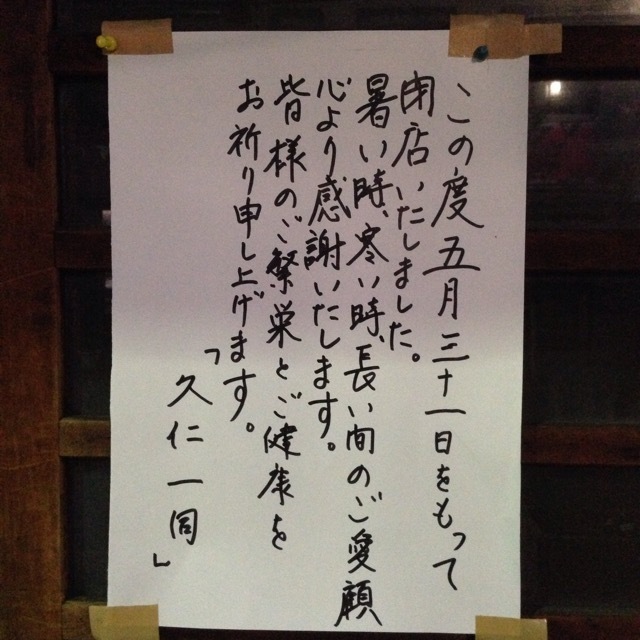 この度五月三十一日をもって
閉店いたしました。
暑い時、寒い時、長い間のご愛顧
心より感謝いたします。
皆様のご繁栄とご健康を
お祈り申し上げます。
「久仁一同」